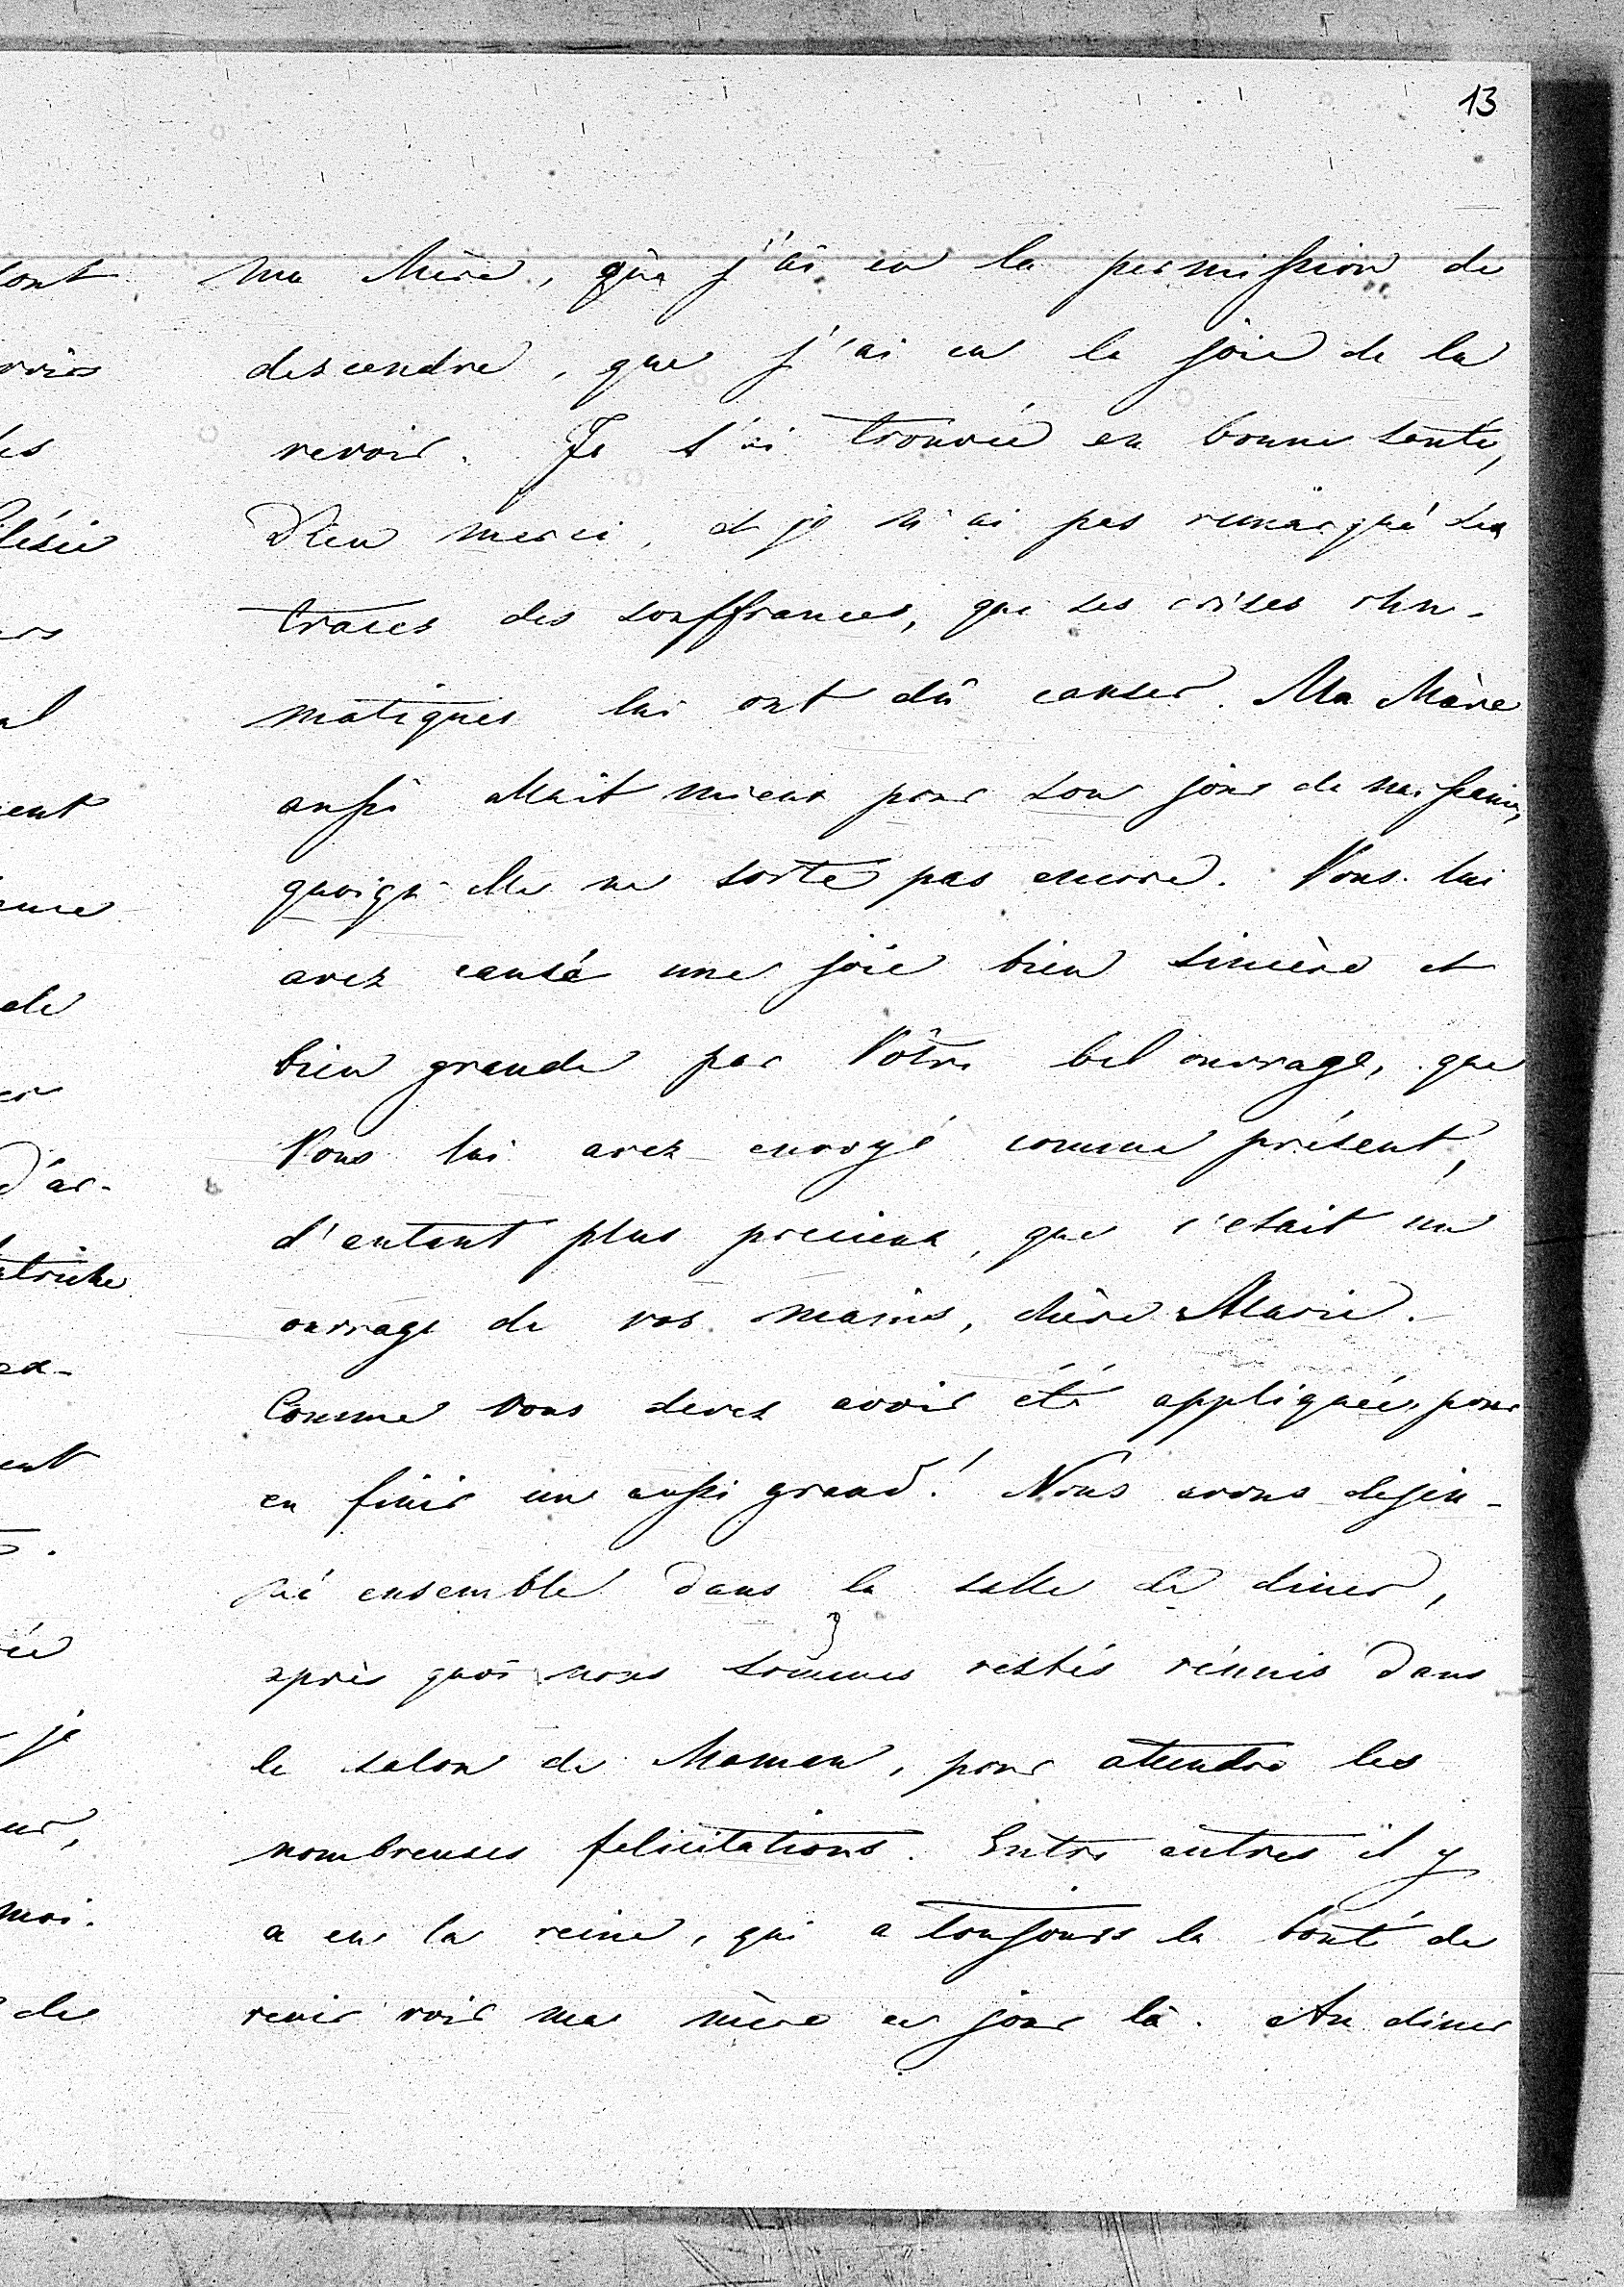 13
ma Mère, que j'ai eu la permission de
descendre, que j'ai eu la joie de la
revoir. Je l'ai trouvée en bonne santé,
Dieu merci, et je n'ai pas remarqué les
traces des souffrances, que ses crises rhu-
matiques lui ont dû causer. Ma Mère
aussi allait mieux pour son jour de naissance,
quoiqu'elle ne sorte pas encore. Vous lui
avez causé une joie bien sincère et
bien grande par Vôtre bel ouvrage, que
Vous lui avez envoyé comme présent,
d'autant plus precieux, que c'etait un
ouvrage de vos mains, chère Marie.
Comme Vous devez avoir été appliquée, pour
en finir un aussi grand! Nous avons dejeu-
né ensemble dans la salle de diner,
après quoi nous sommes restés réunis dans
le salon de Maman, pour attendre les
nombreuses felicitations. Entre autres il y
a eu la reine, qui a toujours la bonté de
venir voir ma mère ce jour là. Au diner